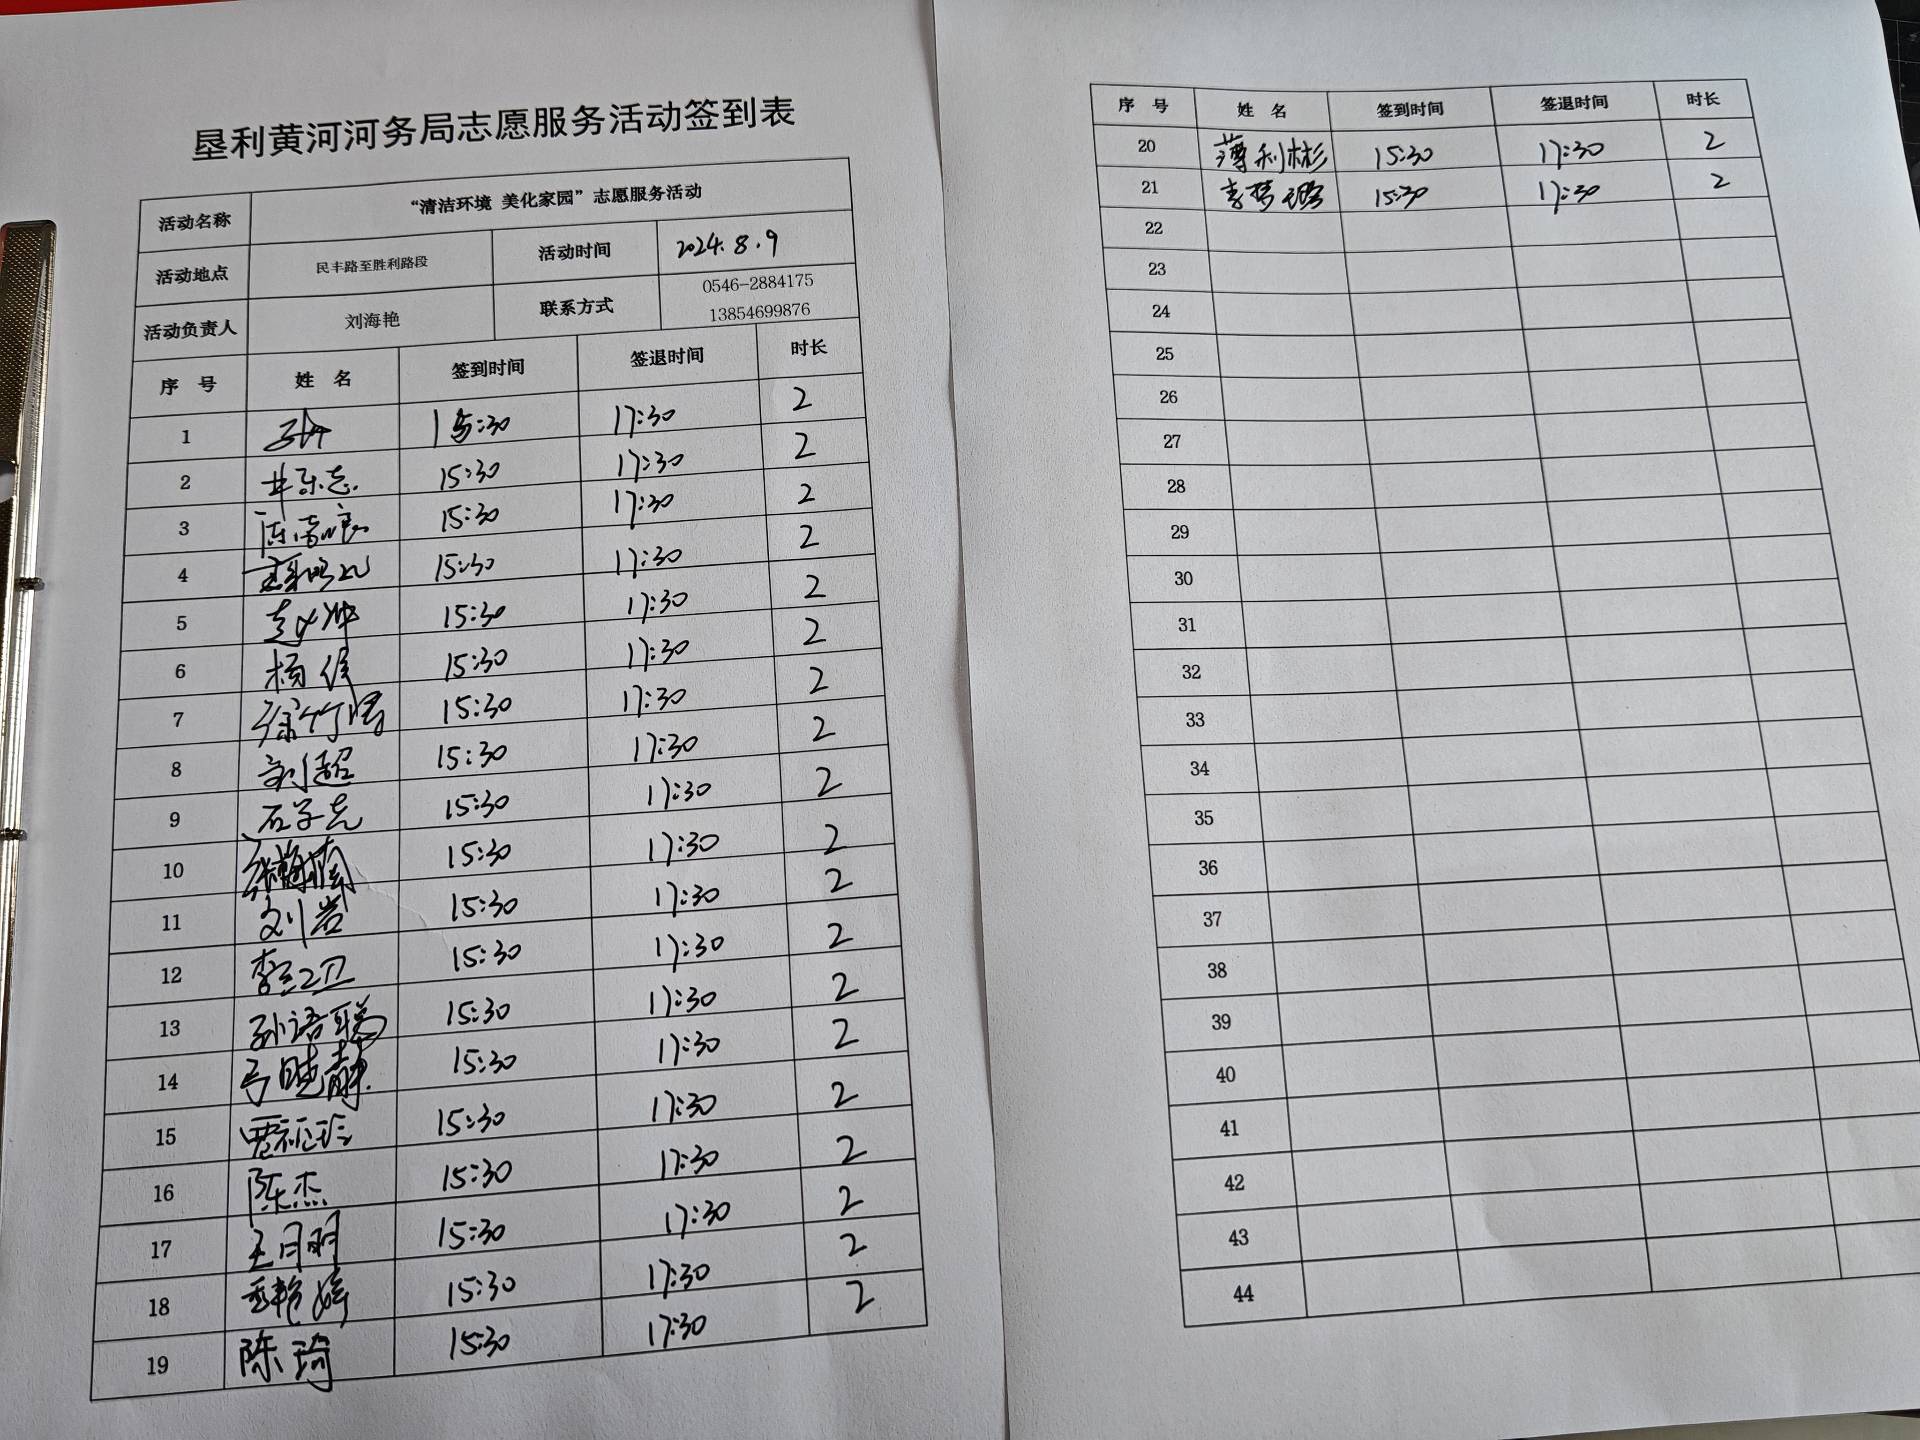 垦利黄河河务局志愿服务活动签到表
活动名称 “清洁环境 美化家园”志愿服务活动
活动地点 民丰路至胜利路段 活动时间 2024.8.9
活动负责人 刘海艳 联系方式 0546-2884175
13854699876
序 号 姓 名 签到时间 签退时间 时长
1 15:30 17:30 2
2 15:30 17:30 2
3 15:30 17:30 2
4 15:30 17:30 2
5 15:30 17:30 2
6 15:30 17:30 2
7 15:30 17:30 2
8 刘超 15:30 17:30 2
9 15:30 17:30 2
10 15:30 17:30 2
11 刘岩 15:30 17:30 2
12 李红卫 15:30 17:30 2
13 孙语聪 15:30 17:30 2
14 弓晓静 15:30 17:30 2
15 15:30 17:30 2
16 陈杰 15:30 17:30 2
17 王月明 15:30 17:30 2
18 15:30 17:30 2
19 陈琦 15:30 17:30 2
序 号 姓 名 签到时间 签退时间 时长
20 薄利彬 15:30 17:30 2
21 李梦璐 15:30 17:30 2
22
23
24
25
26
27
28
29
30
31
32
33
34
35
36
37
38
39
40
41
42
43
44